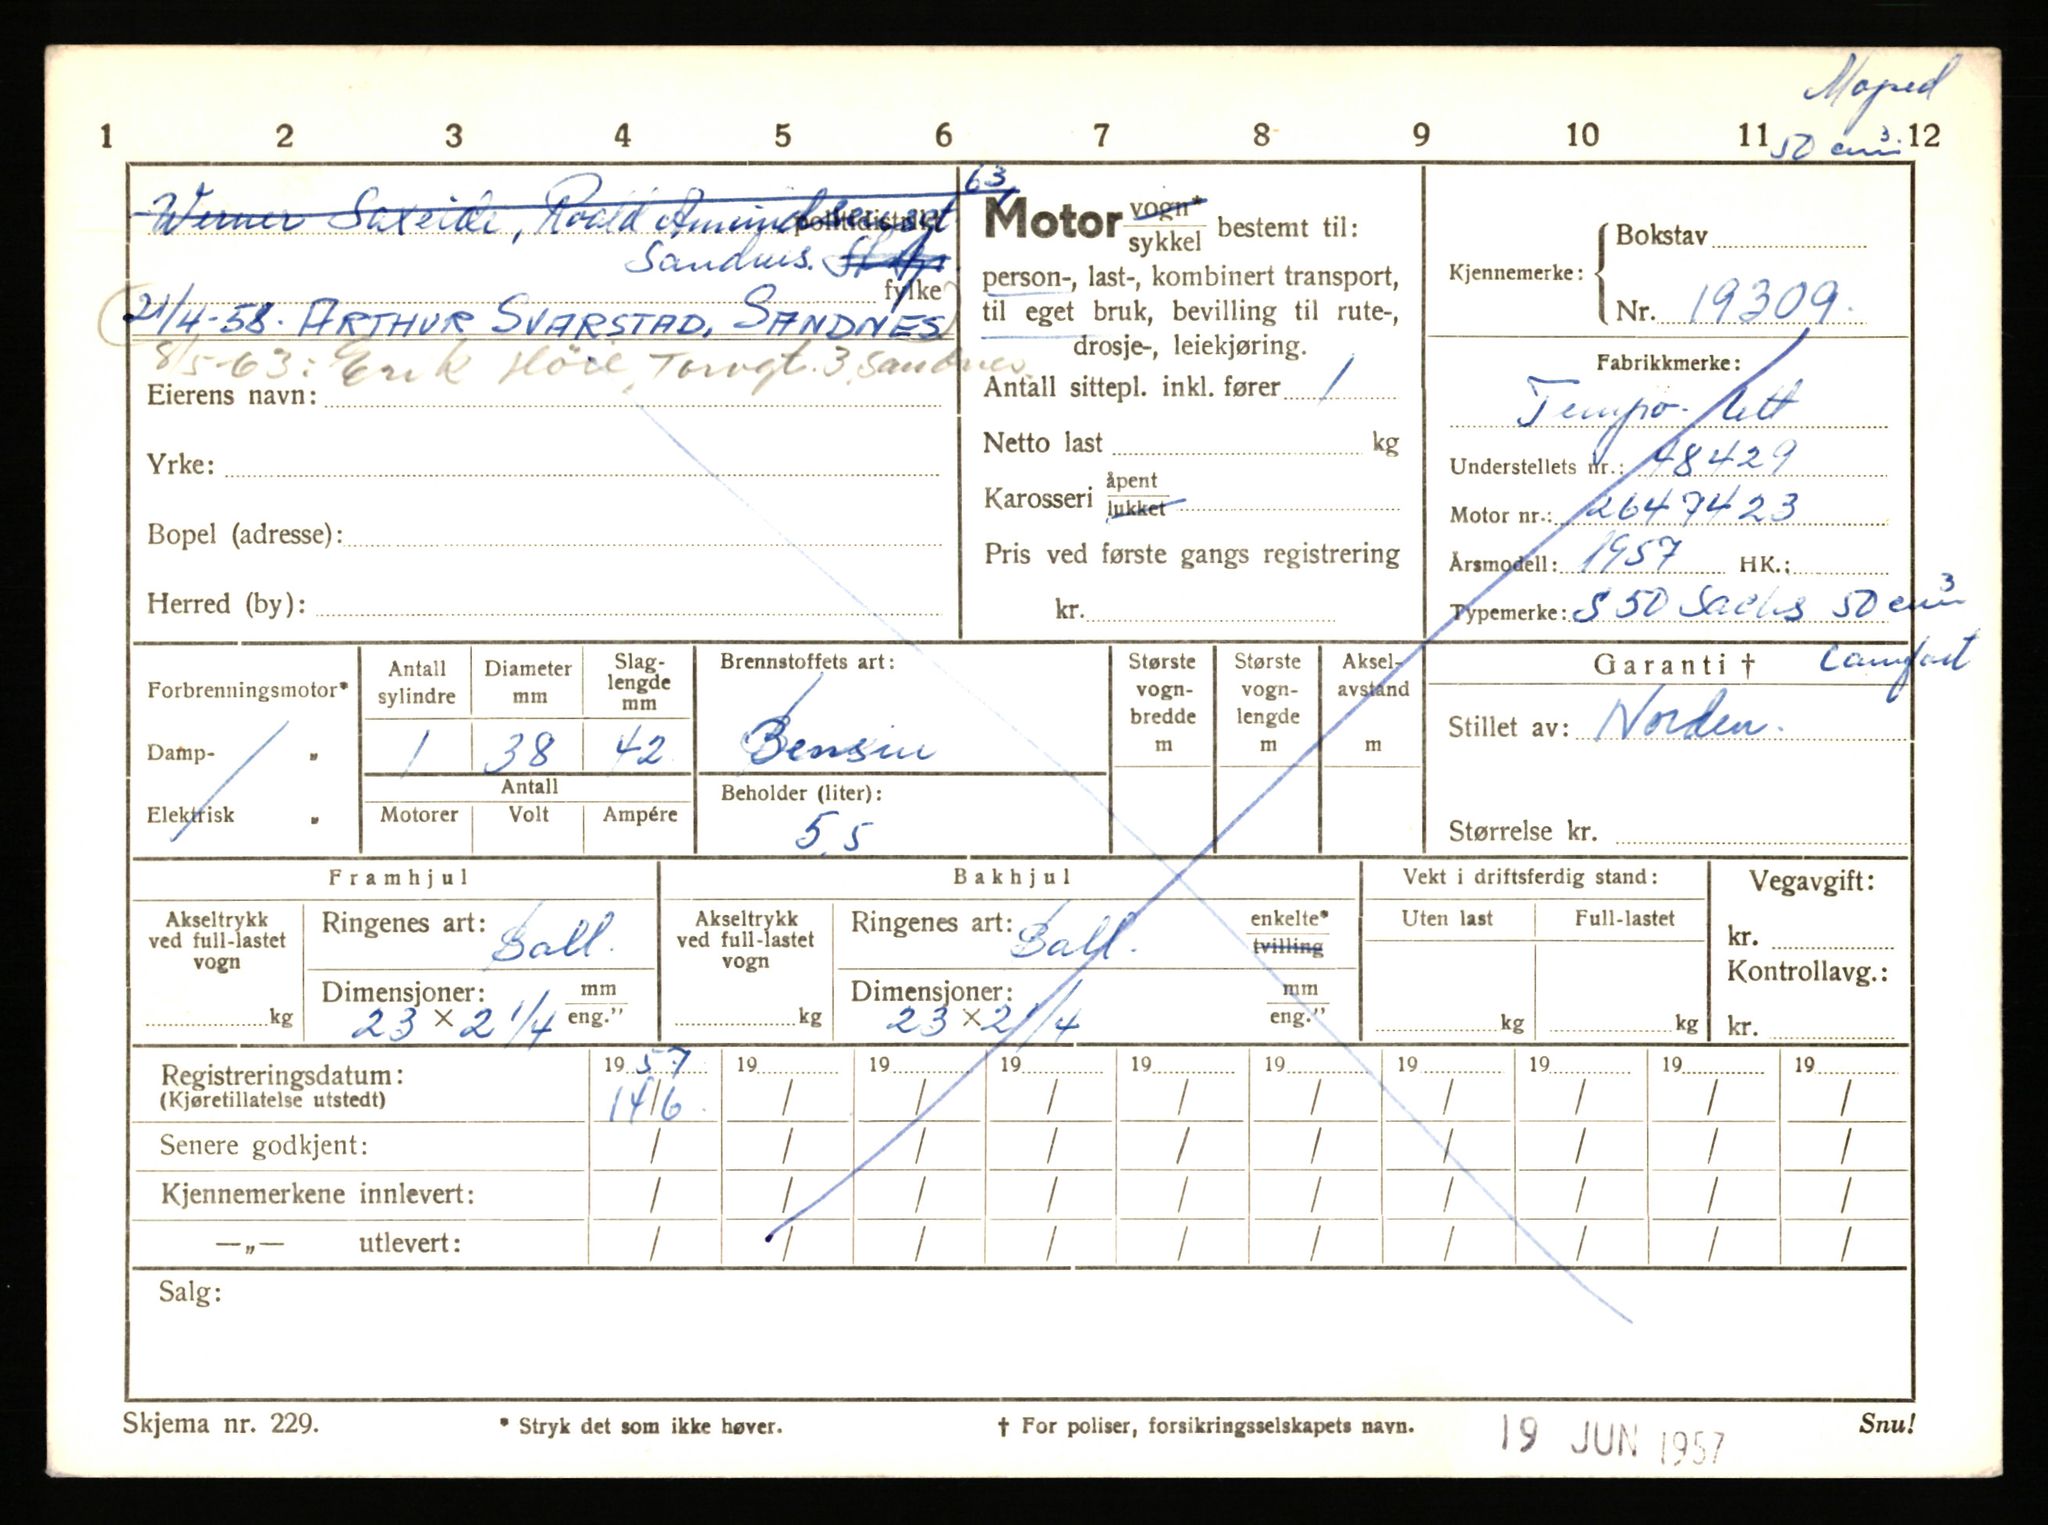 Moped
50 cm³
1 2 3 4 5 6 7 8 9 10 11 12
Werner Saxeide, Roald Amundsens gt 63
politidistrikt
Sandnes.
fylke
21/4-58. ARTHUR SVARSTAD, SANDNES
8/5-63: Erik Höie, Torvgt. 3, Sandnes
Eierens navn:
Yrke:
Bopel (adresse):
Herred (by):
Motor vogn* sykkel bestemt til:
person-, last-, kombinert transport,
til eget bruk, bevilling til rute-,
drosje-, leiekjøring.
Antall sittepl. inkl. fører 1
Netto last kg
Karosseri åpent lukket
Pris ved første gangs registrering
kr.
Kjennemerke: Bokstav
Nr. 19309.
Fabrikkmerke:
Tempo-Lett
Understellets nr.: 48429
Motor nr.: 2647423
Årsmodell: 1957 HK.:
Typemerke: S 50 Sachs 50 cm³
Comfort
Forbrenningsmotor*
Damp- „
Elektrisk „
Antall sylindre
1
Diameter mm
38
Slag-lengde mm
42
Antall
Motorer Volt Ampére
Brennstoffets art:
Bensin
Beholder (liter):
5,5
Største vogn-bredde m
Største vogn-lengde m
Aksel-avstand m
Garanti †
Stillet av: Norden.
Størrelse kr.
Framhjul
Akseltrykk ved full-lastet vogn
kg
Ringenes art: Ball.
Dimensjoner: mm eng."
23 × 2 1/4
Bakhjul
Akseltrykk ved full-lastet vogn
kg
Ringenes art: Ball. enkelte* tvilling
Dimensjoner: mm eng."
23 × 2 1/4
Vekt i driftsferdig stand:
Uten last Full-lastet
kg kg
Vegavgift:
kr.
Kontrollavg.:
kr.
Registreringsdatum: 1957 19 19 19 19 19 19 19 19 19
(Kjøretillatelse utstedt) 14/6. / / / / / / / / /
Senere godkjent: / / / / / / / / / /
Kjennemerkene innlevert: / / / / / / / / / /
—„— utlevert: / / / / / / / / / /
Salg:
Skjema nr. 229. * Stryk det som ikke høver. † For poliser, forsikringsselskapets navn. Snu!
19 JUN 1957